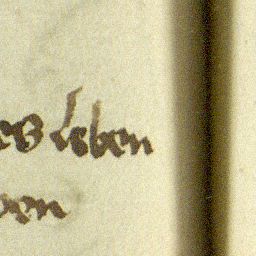 es leben
en